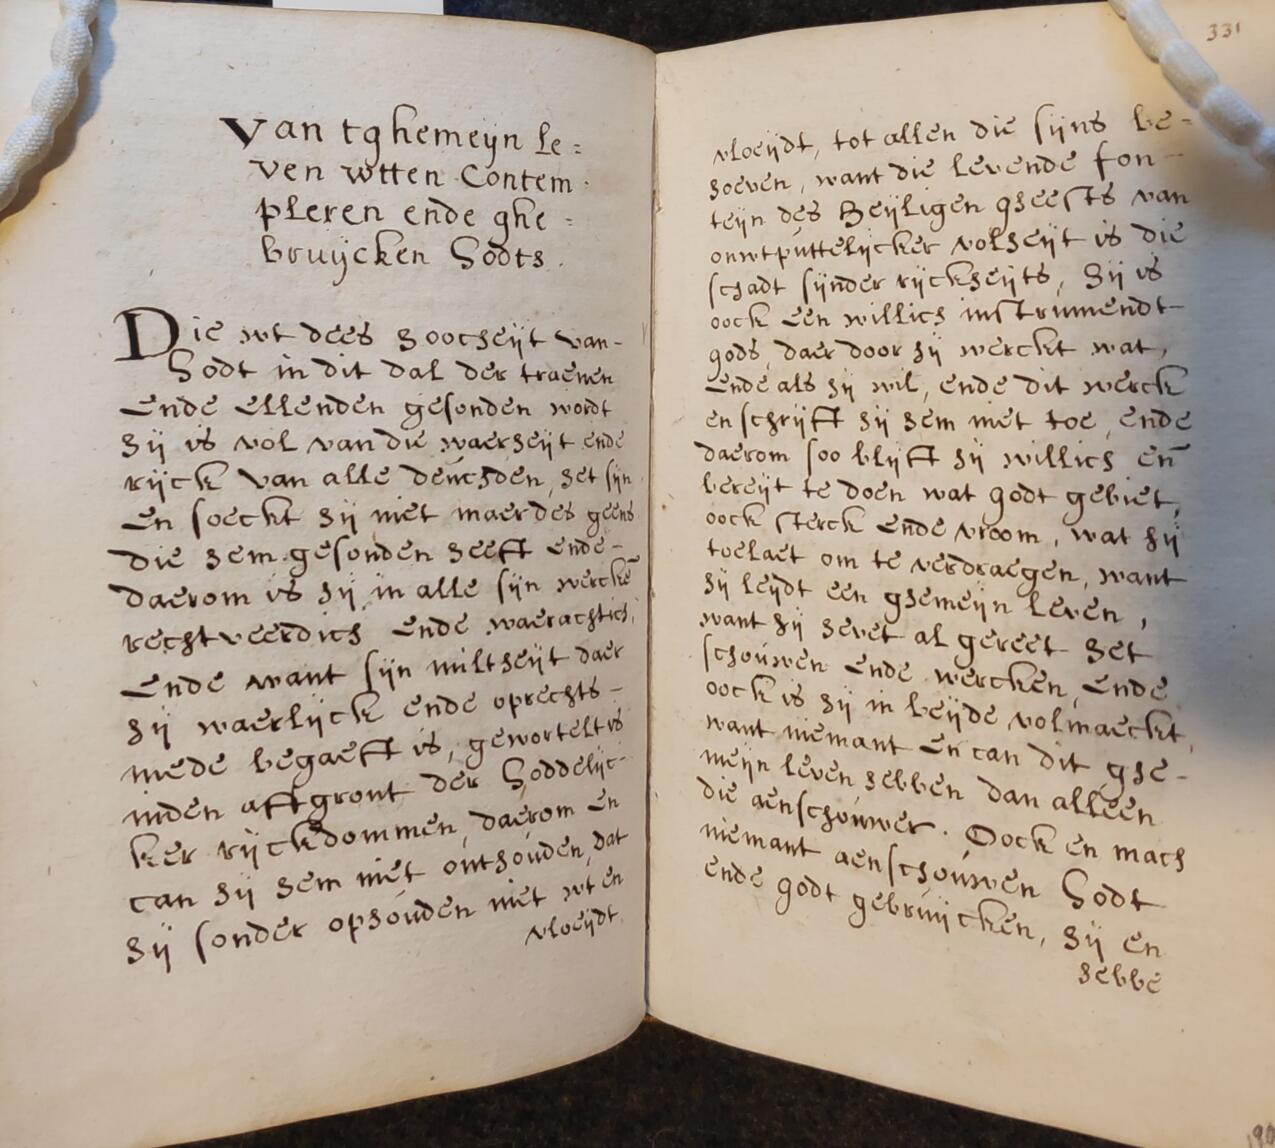 Van tghemeijn le=
ven wtten Contem
pleren ende ghe=
bruijcken Godts.
Die wt dees hoocheijt van-
Godt in dit dal der traenen
Ende Ellenden gesonden wordt
hij is vol van die waerheijt ende
rijck van alle deuchden, het sijn
En soeckt hij niet maer des geens
die hem gesonden heeft Ende-
daerom is hij in alle sijn wercke̅
rechtveerdich Ende waerachtich,
Ende want sijn miltheijt daer
hij waerlijck ende oprechts-
mede begaeft is, gewortelt is
inden aftgront der Goddelijc-
ker rijckdommen, daerom En
can hij hem niet onthouden, dat
hij sonder ophouden niet wt en
vloeijdt
331
vloeijdt, tot allen die sijns be=
hoeven, want die levende fon-
teijn des Heijligen gheests van
onwtputtelijcker volheijt is die
schadt sijnder rijckheijts, Hij is
oock Een willich instrumendt-
gods, daer door hij werckt wat,
Ende als hij wil, ende dit werck
en schrijft hij hem niet toe, ende
daerom soo blijft hij willich en̅
bereijt te doen wat godt gebiet,
oock sterck Ende vroom, wat hij
toelaet om te verdraegen, want
hij leijdt een ghemeijn leven,
want hij hevet al gereet het
schouwen Ende wercken, Ende
oock is hij in beijde volmaeckt,
want niemant En can dit ghe-
meijn leven hebben dan alleen
die aenschouwer. Oock en mach
niemant aenschouwen Godt
ende godt gebruijcken, hij en
hebbe